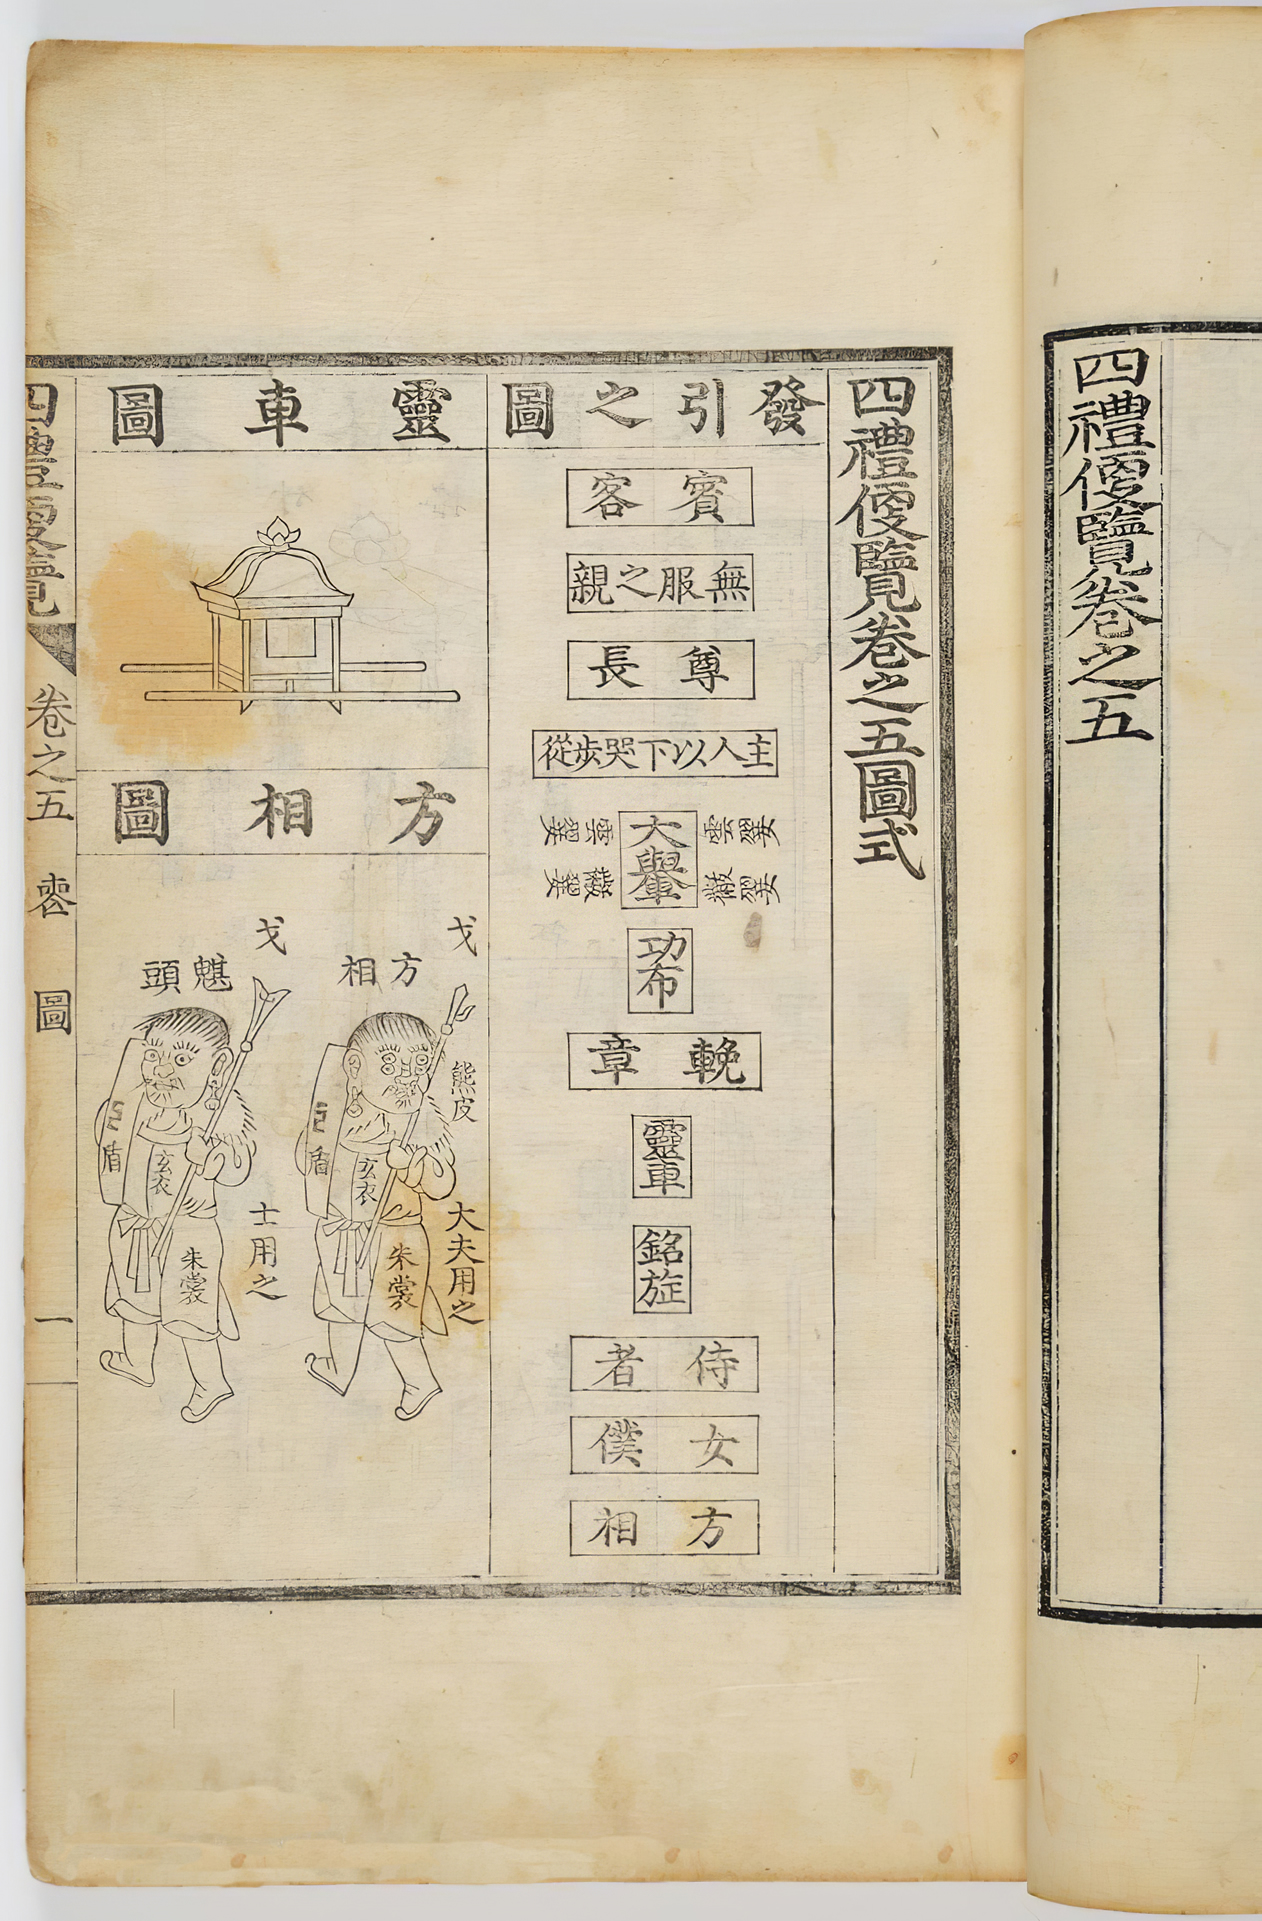 四禮便覽卷之五
四禮便覽卷之五圖式
發引之圖
賓客
無服之親
尊長
主人以下哭步從
雲翣
黻翣
大轝
雲翣
黻翣
功布
輓章
靈車
銘旌
侍者
女僕
方相
靈車圖
方相圖
戈
方相
熊皮
玄衣
朱裳
盾
大夫用之
戈
魌頭
玄衣
朱裳
盾
士用之
四禮便覽
卷之五
喪
圖
一